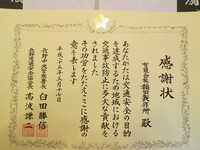 感謝状
有限会社 稲田製作所 殿
あなたがたは交通安全の目的
を達成するため地域における
交通事故防止に多大な貢献を
されました
その功労をたたえここに感謝の
意を表します
平成二十五年五月十七日
長野中央警察署長 白田勝信
長野交通安全協会長 高波謙二